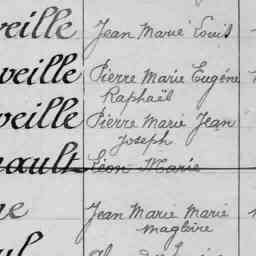 veille Jean Marie Louis
veille Pierre Marie Eugène
Raphaël
veille Pierre Marie Jean
Joseph
nault Léon Marie
Jean Marie Marie
Magloire